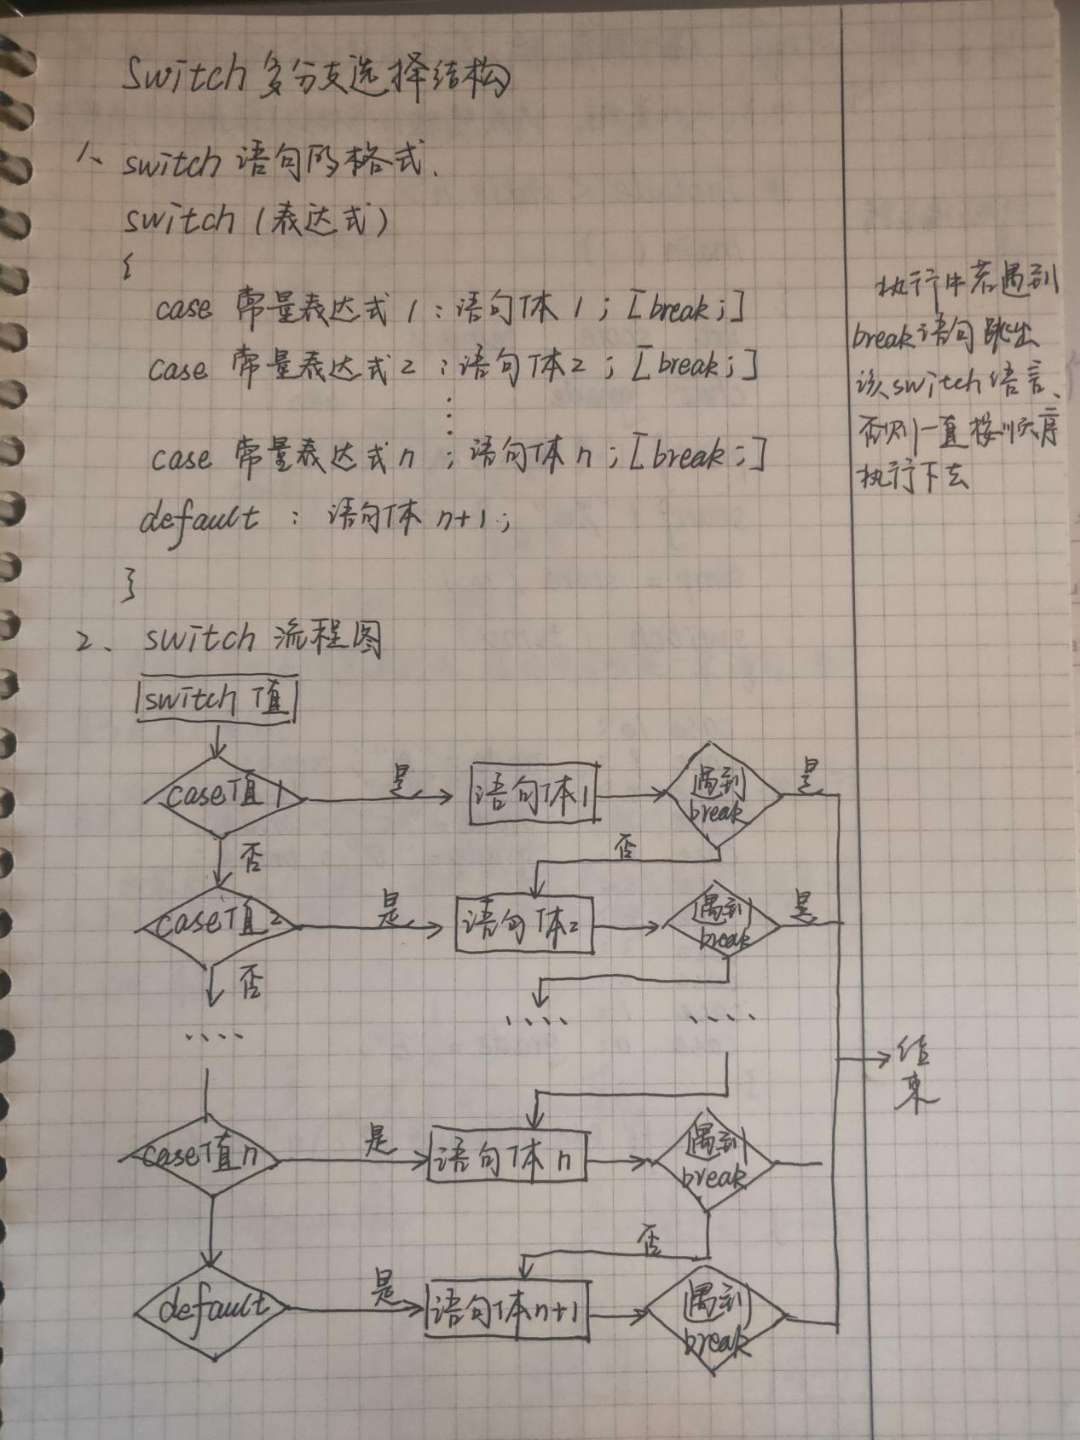 Switch 多分支选择结构
1、switch 语句的格式.
switch (表达式)
{
case 常量表达式1：语句体1；[break；]
case 常量表达式2：语句体2；[break；]
⋮
case 常量表达式n；语句体n；[break；]
default：语句体n+1；
}
执行中若遇到
break语句跳出
该switch语言、
否则一直按顺序
执行下去
2、switch 流程图
switch 值
case值1 是 语句体1 遇到break 是
否 否
case值2 是 语句体2 遇到break 是
否
···· ···· ····
结束
case值n 是 语句体n 遇到break
否
default 是 语句体n+1 遇到break